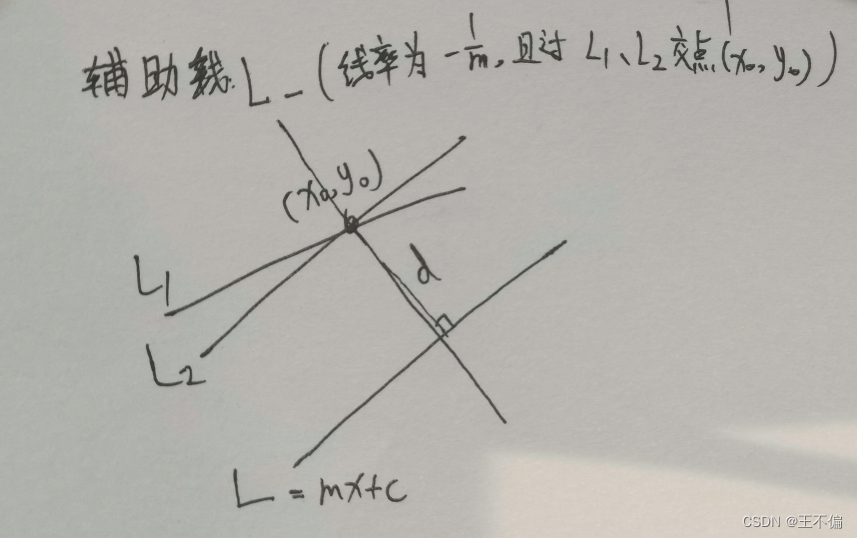 辅助线: L - (线率为 -1/m, 且过 L₁、L₂ 交点 (x₀, y₀))
(x₀, y₀)
d
L₁
L₂
L = mx+c
CSDN @王不偏